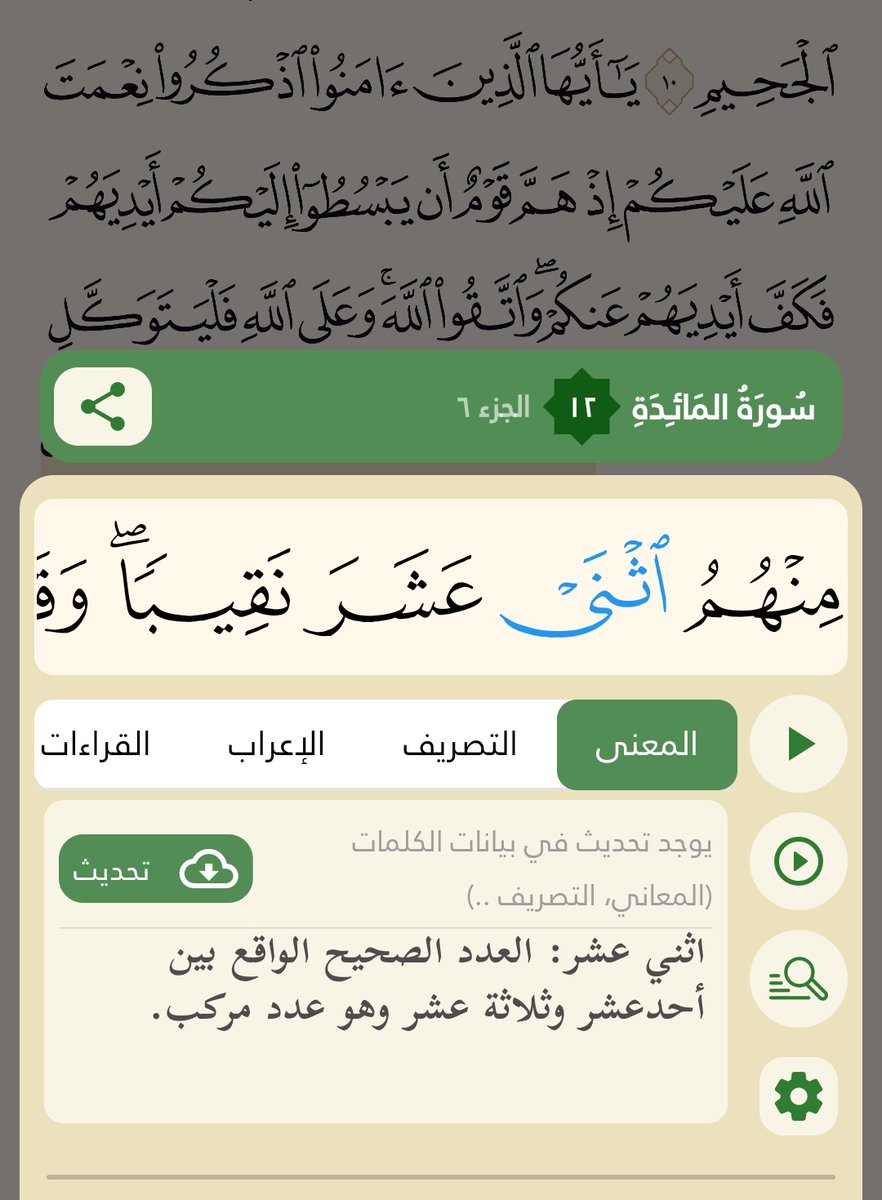 ٱلْجَحِيمِ ١٠ يَـٰٓأَيُّهَا ٱلَّذِينَ ءَامَنُوا۟ ٱذْكُرُوا۟ نِعْمَتَ
ٱللَّهِ عَلَيْكُمْ إِذْ هَمَّ قَوْمٌ أَن يَبْسُطُوٓا۟ إِلَيْكُمْ أَيْدِيَهُمْ
فَكَفَّ أَيْدِيَهُمْ عَنكُمْ ۖ وَٱتَّقُوا۟ ٱللَّهَ ۚ وَعَلَى ٱللَّهِ فَلْيَتَوَكَّلِ
سُورَةُ المَائِدَةِ ١٢ الجزء ٦
مِنْهُمُ ٱثْنَىْ عَشَرَ نَقِيبًا ۖ وَقَ
المعنى التصريف الإعراب القراءات
يوجد تحديث في بيانات الكلمات
(المعاني، التصريف ..)
تحديث
اثْني عشر: العدد الصحيح الواقع بين
أحدعشر وثلاثة عشر وهو عدد مركب.